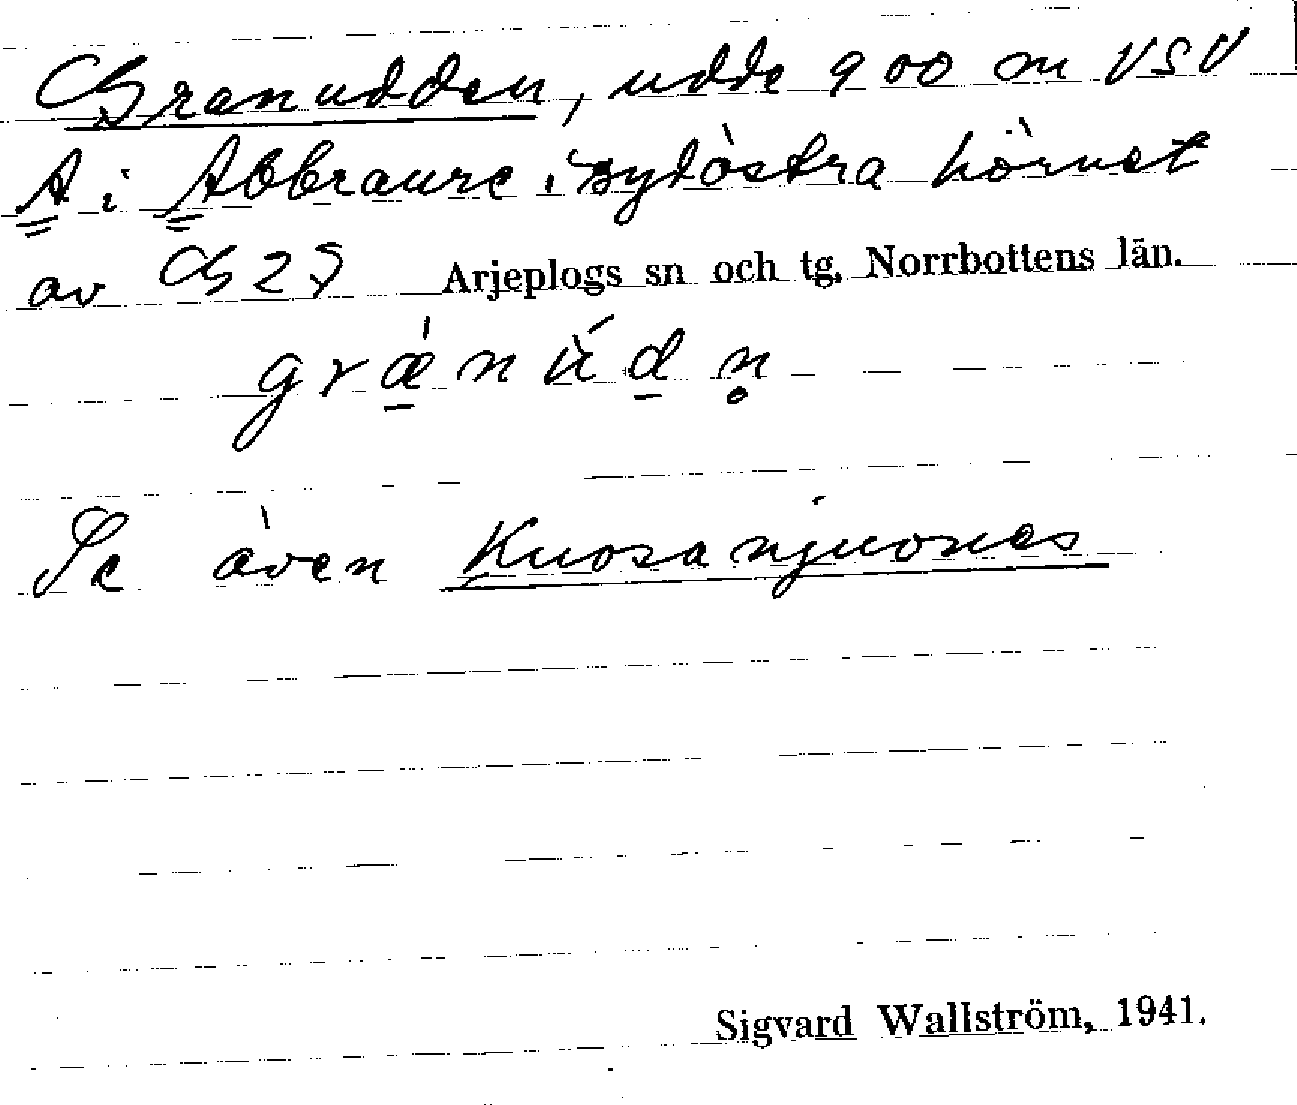 Granudden, udde 900 m VSV
A i Abbraure i sydöstra hörnet
av G 29 Arjeplogs sn och tg. Norrbottens län.
grænúdn̥
Se även Kuosanjuones
Sigvard Wallström, 1941.